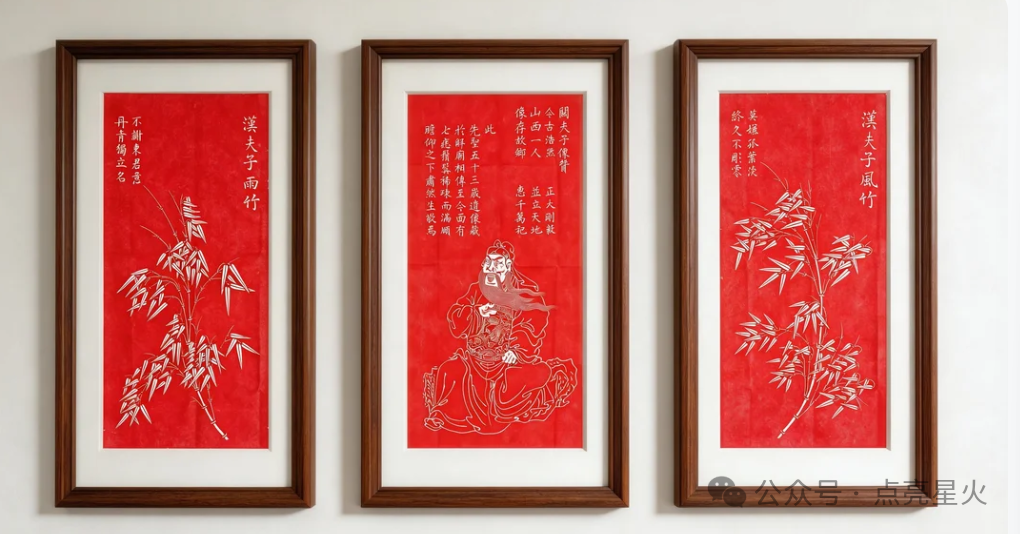 漢夫子雨竹
不謝東君意
丹青獨立名
關夫子像贊
今古浩然 正大剛毅
山西一人 並立天地
像存故鄉 惠千萬祀
此
先聖五十三歲遺像藏
於解廟相傳至今面有
七痣鬚髯稀疎而滿頤
瞻仰之下肅然生敬焉
漢夫子風竹
莫嫌孤葉淡
終久不彫零
公众号 · 点亮星火